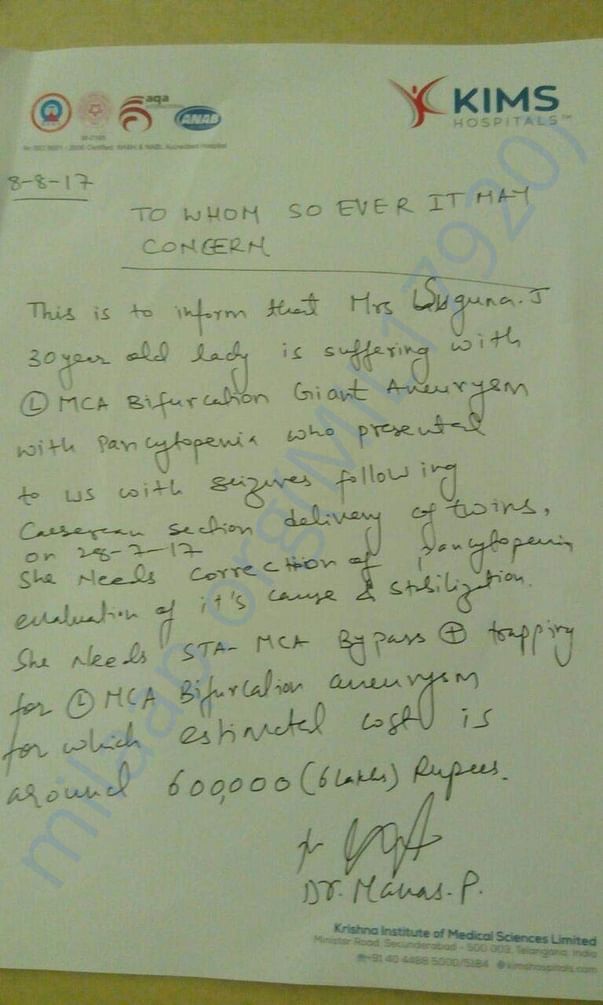 aqa
ANAB
KIMS
HOSPITALS™
An ISO 9001 - 2008 Certified, NABH & NABL Accredited Hospital
8-8-17
TO WHOM SO EVER IT MAY
CONCERN
This is to inform that Mrs Suguna. J
30 year old lady is suffering with
Ⓛ MCA Bifurcation Giant Aneurysm
with Pancytopenia who presented
to us with seizures following
Caeserean section delivery of twins,
on 28-7-17
She Needs correction of pancytopenia
evaluation of it's cause & stabilization.
She Needs STA- MCA Bypass ⊕ trapping
for Ⓛ MCA Bifurcation aneurysm
for which estimated cost is
around 600,000 (6 lakhs) Rupees.
Dr. Manas. P.
Krishna Institute of Medical Sciences Limited
Minister Road, Secunderabad - 500 003, Telangana, India
+91 40 4488 5000/5184 kimshospitals.com
milaap.org(MIL17920)